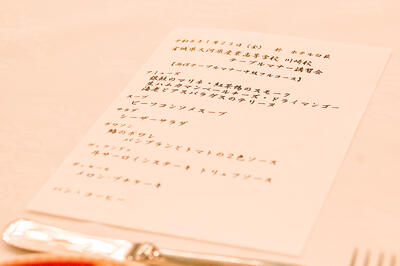 令和5年1月23日(金) 於 ホテルの萩
宮城県大河原産業高等学校 川崎校
テーブルマナー講習会
アミューズ
銀鮭のマリネ・紅茶鴨のスモーク
生ハムカマンベールチーズ・ドライマンゴー
海老とアスパラガスのテリーヌ
スープ
ビーフコンソメスープ
サラダ
シーザーサラダ
ポワソン
鯛のポワレ
バンブランとトマトの2色ソース
ヴィアンド
牛サーロインステーキ トリュフソース
デセール
メロン・プチケーキ
パン・コーヒー